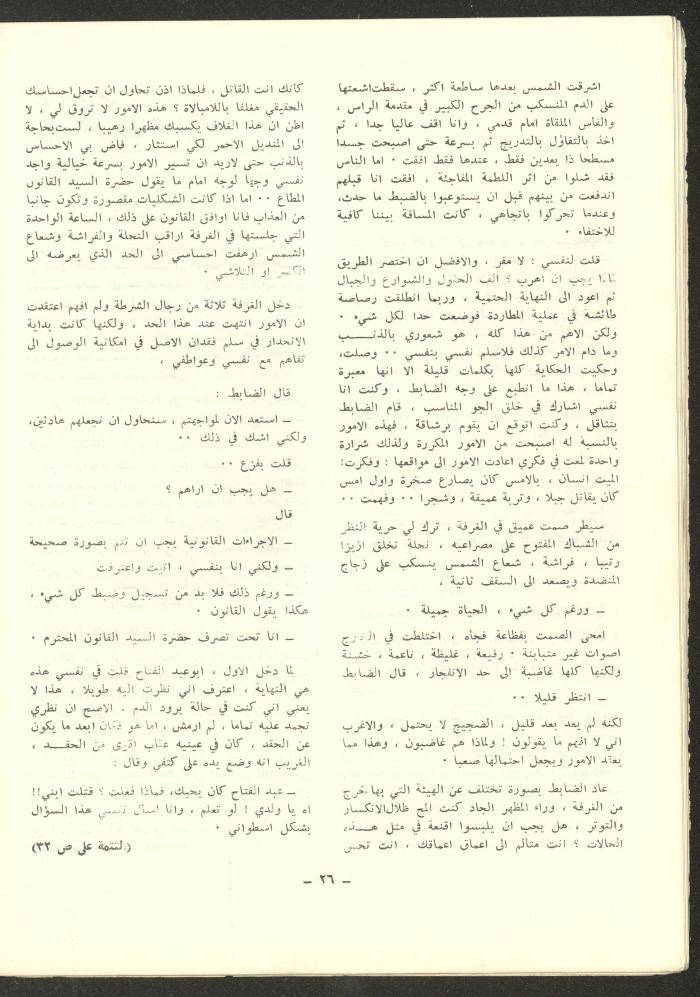 اشرقت الشمس بعدها ساطعة اكثر ، سقطت اشعتها
على الدم المنسكب من الجرح الكبير في مقدمة الراس ،
والفاس الملقاة امام قدمي ، وانا اقف عاليا جدا ، ثم
اخذ بالتفاؤل بالتدريج ثم بسرعة حتى اصبحت جسدا
مسطحا ذا بعدين فقط ، عندها فقط افقت ٠ اما الناس
فقد شلوا من اثر اللطمة المفاجئة ، افقت انا قبلهم
اندفعت من بينهم قبل ان يستوعبوا بالضبط ما حدث،
وعندما تحركوا باتجاهي ، كانت المسافة بيننا كافية
للاختفاء ٠
قلت لنفسي : لا مفر ، والافضل ان اختصر الطريق
لماذا يجب ان اهرب ؟ الف الحقول والشوارع والجبال
ثم اعود الى النهاية الحتمية ، وربما انطلقت رصاصة
طائشة في عملية المطاردة فوضعت حدا لكل شيء ٠
ولكن الاهم من هذا كله ، هو شعوري بالذنب
وما دام الامر كذلك فلاسلم نفسي بنفسي ٠٠ وصلت،
وحكيت الحكاية كلها بكلمات قليلة الا انها معبرة
تماما ، هذا ما انطبع على وجه الضابط ، وكنت انا
نفسي اشارك في خلق الجو المناسب ، قام الضابط
بتثاقل ، وكنت اتوقع ان يقوم برشاقة ، فهذه الامور
بالنسبة له اصبحت من الامور المكررة ولذلك شرارة
واحدة لمعت في فكري اعادت الامور الى مواقعها : وفكرت:
الميت انسان ، بالامس كان يصارع صخرة واول امس
كان يقاتل جبلا ، وتربة عميقة ، وشجرا ٠٠ وفهمت ٠٠
سيطر صمت عميق في الغرفة ، ترك لي حرية النظر
من الشباك المفتوح على مصراعيه ، نحلة تخلق ازيزا
رتيبا ، فراشة ، شعاع الشمس ينسكب على زجاج
المنضدة ويصعد الى السقف ثانية ،
ــ ورغم كل شيء ، الحياة جميلة ٠
امحى الصمت بفظاعة فجاه ، اختلطت في الخارج
اصوات غير متباينة ٠ رفيعة ، غليظة ، ناعمة ، خشنة
ولكنها كلها غاضبة الى حد الانفجار ، قال الضابط
ــ انتظر قليلا ٠٠
لكنه لم يعد بعد قليل ، الضجيج لا يحتمل ، والاغرب
اني لا افهم ما يقولون ! ولماذا هم غاضبون ، وهذا مما
يعقد الامور ويجعل احتمالها صعبا ٠
عاد الضابط بصورة تختلف عن الهيئة التي بها خرج
من الغرفة ، وراء المظهر الجاد كنت المح ظلال الانكسار
والتوتر ، هل يجب ان يلبسوا اقنعة في مثل هذه
الحالات ؟ انت متالم الى اعماق اعماقك ، انت تحس
كانك انت القاتل ، فلماذا اذن تحاول ان تجعل احساسك
الحقيقي مغلفا باللامبالاة ؟ هذه الامور لا تروق لي ، لا
اظن ان هذا الغلاف يكسبك مظهرا رهيبا ، لست بحاجة
الى المنديل الاحمر لكي استثار ، فاض بي الاحساس
بالذنب حتى لاريد ان تسير الامور بسرعة خيالية واجد
نفسي وجها لوجه امام ما يقول حضرة السيد القانون
المطاع ٠٠ اما اذا كانت الشكليات مقصورة وتكون جانبا
من العذاب فانا اوافق القانون على ذلك ، الساعة الواحدة
التي جلستها في الغرفة اراقب النحلة والفراشة وشعاع
الشمس ارهفت احساسي الى الحد الذي يعرضه الى
الكسر او التلاشي ٠
دخل الغرفة ثلاثة من رجال الشرطة ولم افهم اعتقدت
ان الامور انتهت عند هذا الحد ، ولكنها كانت بداية
الانحدار في سلم فقدان الاصل في امكانية الوصول الى
تفاهم مع نفسي وعواطفي ،
قال الضابط :
ــ استعد الان لمواجهتم ، سنحاول ان نجعلهم هادئين،
ولكني اشك في ذلك ٠٠
قلت بفزع ٠٠
ــ هل يجب ان اراهم ؟
قال
ــ الاجراءات القانونية يجب ان تتم بصورة صحيحة
ــ ولكني انا بنفسي ، اتيت واعترفت
ــ ورغم ذلك فلا بد من تسجيل وضبط كل شيء ،
هكذا يقول القانون ٠
ــ انا تحت تصرف حضرة السيد القانون المحترم ٠
لما دخل الاول ، ابوعبد الفتاح قلت في نفسي هذه
هي النهاية ، اعترف اني نظرت اليه طويلا ، هذا لا
يعني اني كنت في حالة برود الدم ، الاصح ان نظري
تجمد عليه تماما ، لم ارمش ، اما هو فكان ابعد ما يكون
عن الحقد ، كان في عينيه عتاب اقوى من الحقد ،
الغريب انه وضع يده على كتفي وقال :
ــ عبد الفتاح كان يحبك، فماذا فعلت ؟ قتلت ابني!!
اه يا ولدي ! لو تعلم ، وانا اسال نفسي هذا السؤال
بشكل اسطواني ٠
(التتمة على ص ٣٢)
ــ ٢٦ ــ